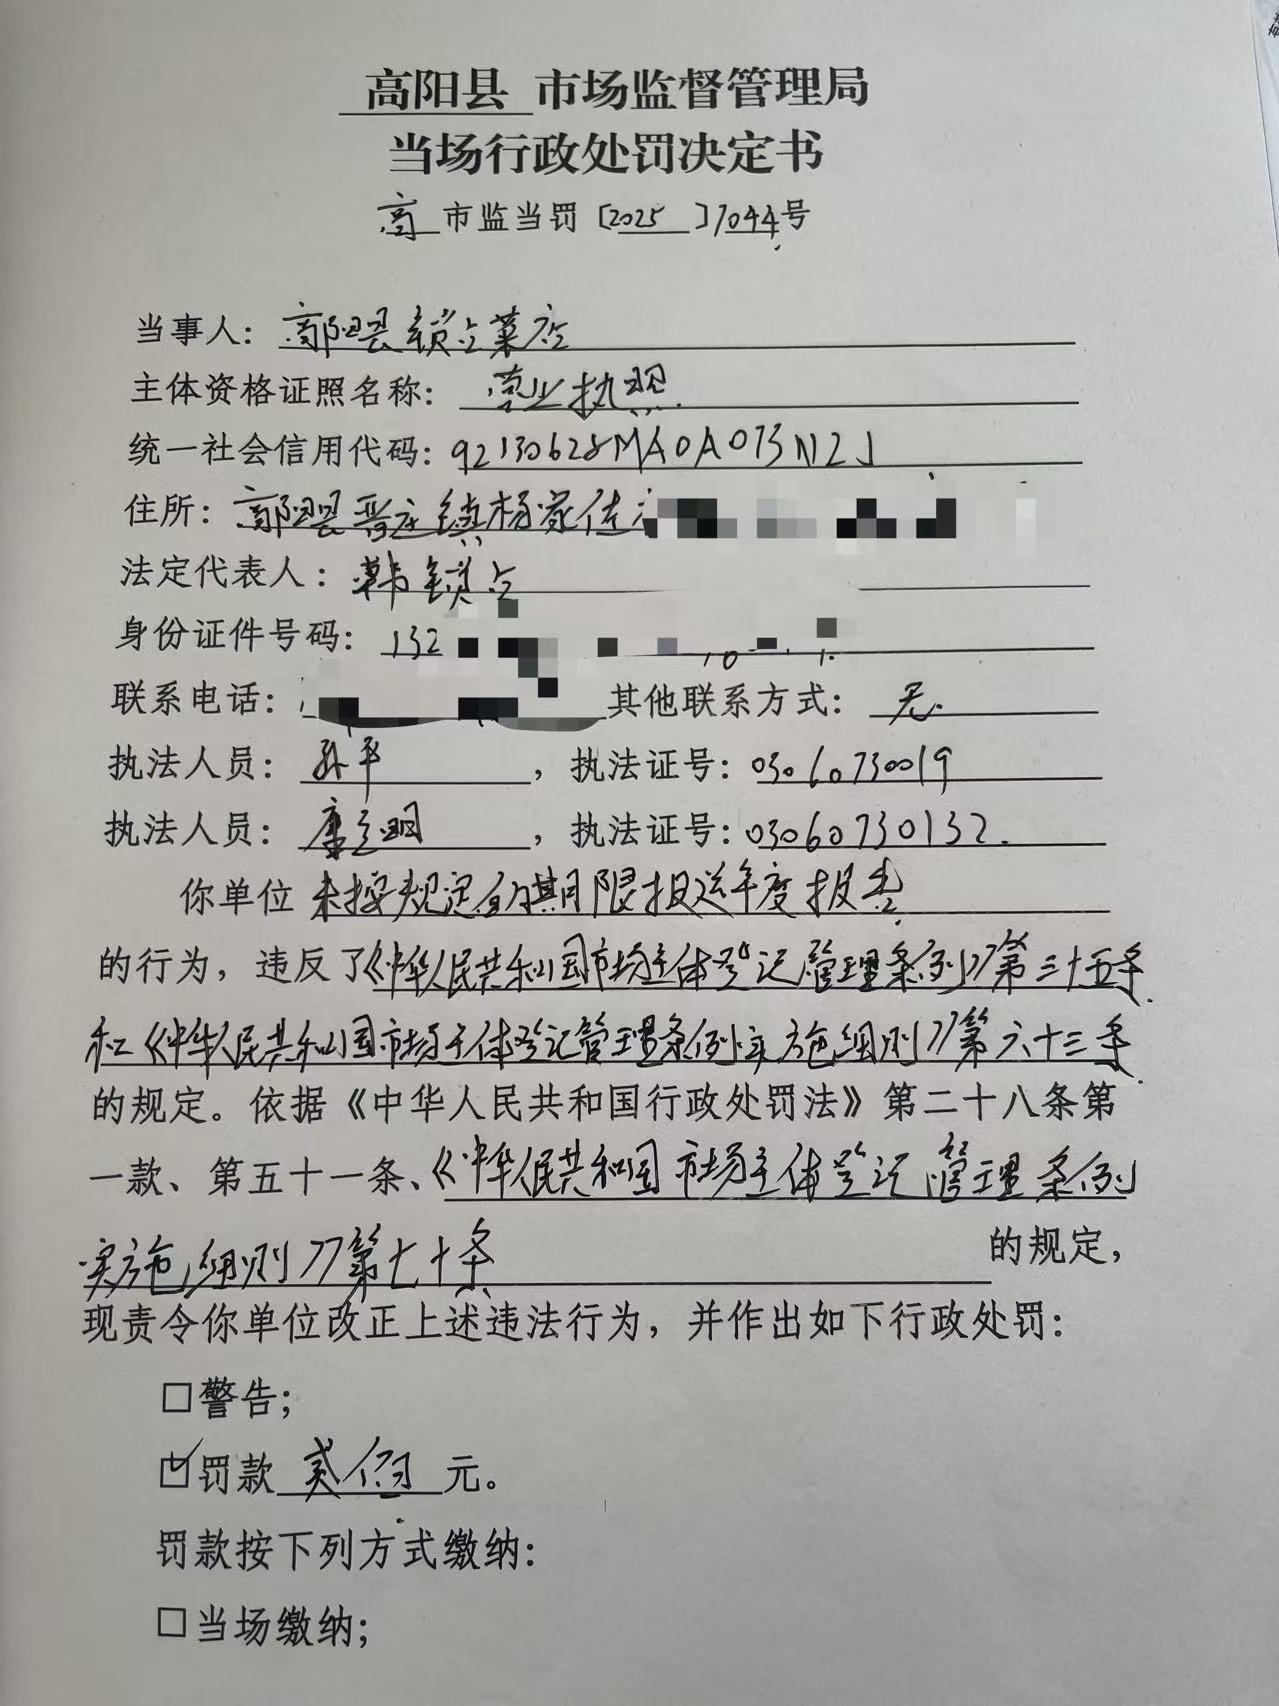 高阳县 市场监督管理局
当场行政处罚决定书
高 市监当罚〔2025〕7044号
当事人：高阳县锁占菜店
主体资格证照名称：营业执照
统一社会信用代码：92130628MA0A073N2J
住所：高阳县晋庄镇杨家佐
法定代表人：韩锁占
身份证件号码：132
联系电话： 其他联系方式：无
执法人员：孙平，执法证号：03060730019
执法人员：康立明，执法证号：03060730132
你单位未按规定的期限报送年度报告
的行为，违反了《中华人民共和国市场主体登记管理条例》第三十五条
和《中华人民共和国市场主体登记管理条例实施细则》第六十三条
的规定。依据《中华人民共和国行政处罚法》第二十八条第
一款、第五十一条、《中华人民共和国市场主体登记管理条例
实施细则》第七十条 的规定，
现责令你单位改正上述违法行为，并作出如下行政处罚：
□警告；
☑罚款 贰佰 元。
罚款按下列方式缴纳：
□当场缴纳；